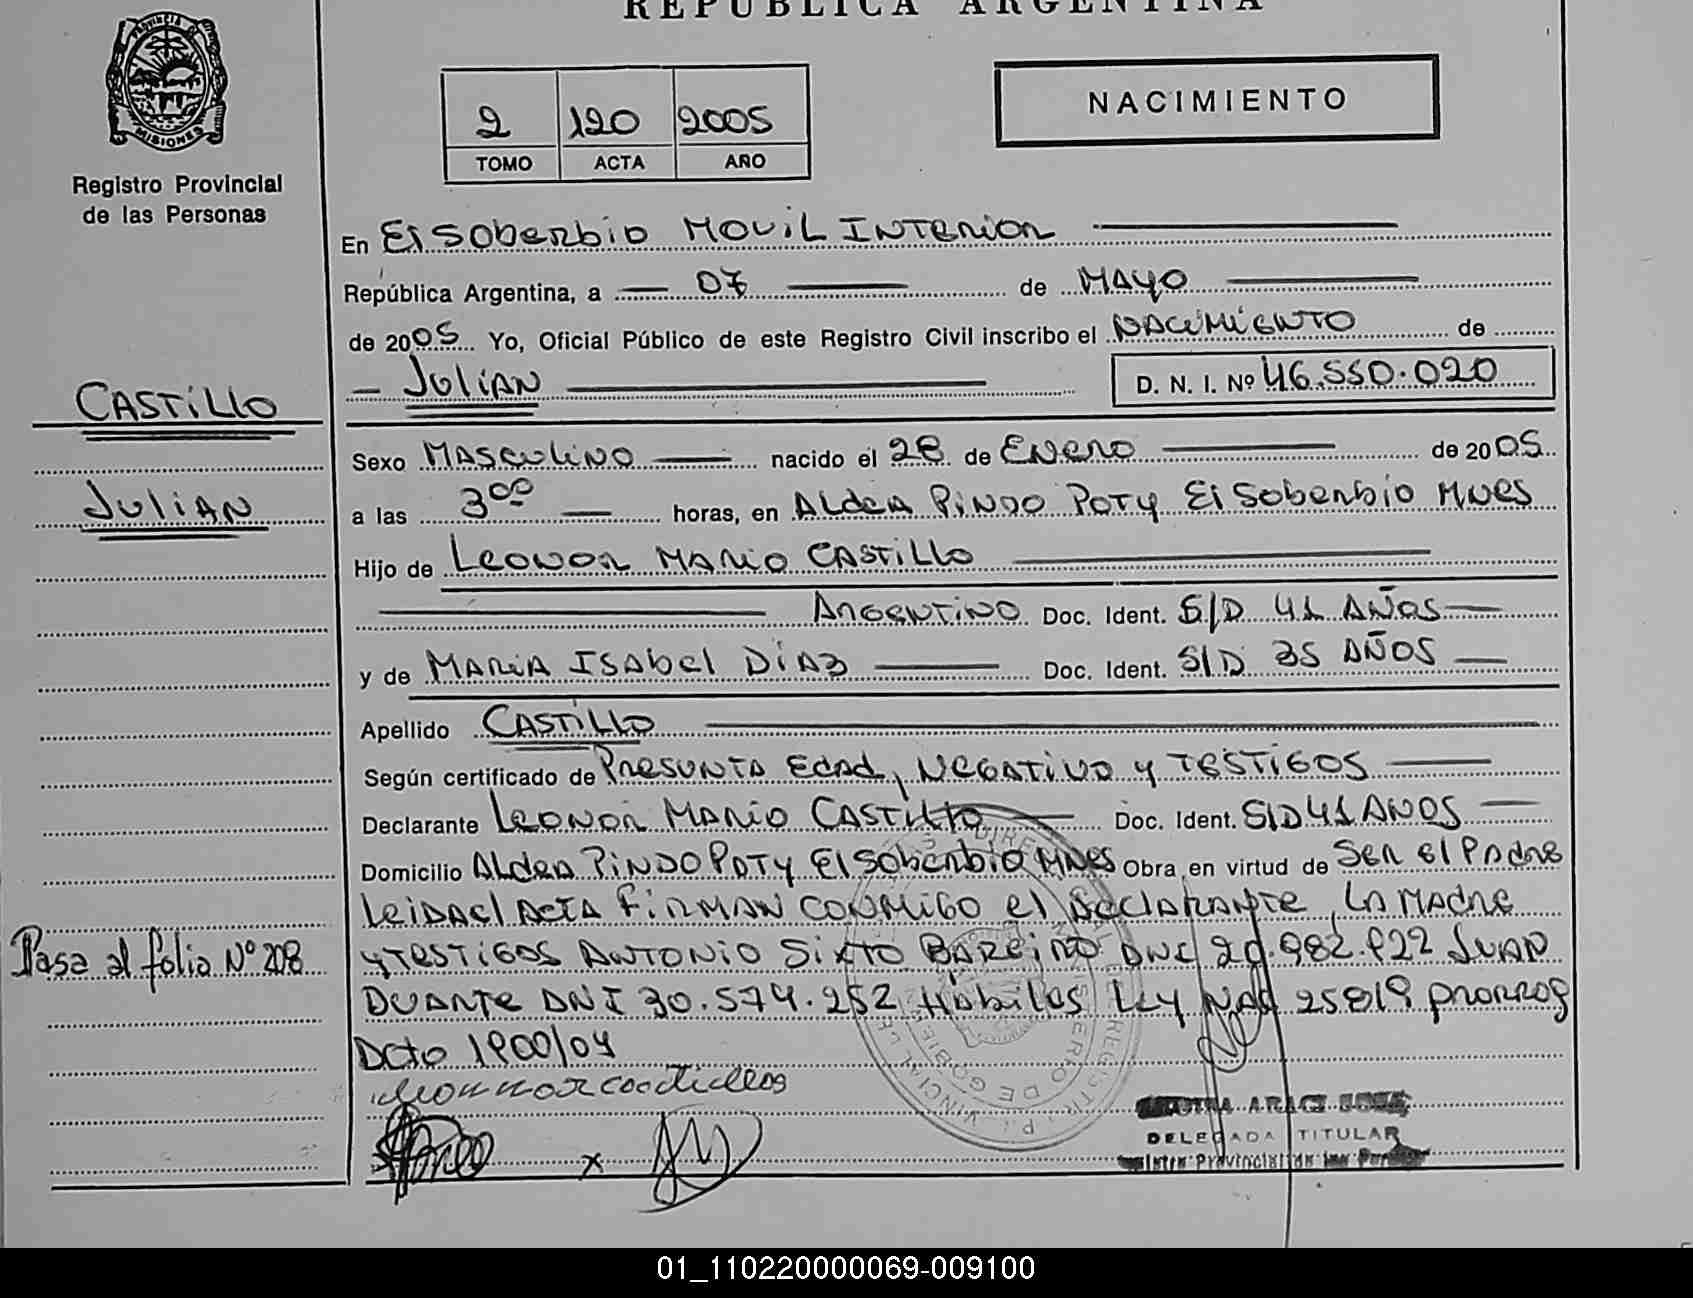 REPUBLICA ARGENTINA
PROVINCIA DE MISIONES
Registro Provincial
de las Personas
2 120 2005
TOMO ACTA AÑO
NACIMIENTO
En El Soberbio Movil Interior
República Argentina, a 07 de Mayo
de 2005 Yo, Oficial Público de este Registro Civil inscribo el Nacimiento de
Julian D. N. I. Nº 46.550.020
CASTILLO
Julian
Sexo Masculino nacido el 28 de Enero de 2005
a las 3 00 horas, en Aldea Pindo Poty El Soberbio Mnes
Hijo de Leonor Mario Castillo
Argentino Doc. Ident. S/D 41 AÑOS
y de Maria Isabel Diaz Doc. Ident. S/D 35 AÑOS
Apellido CASTILLO
Según certificado de Presunta Edad, Negativo y Testigos
Declarante Leonor Mario Castillo Doc. Ident. S/D 41 ANOS
Domicilio Aldea Pindo Poty El Soberbio Mnes Obra en virtud de Ser el Padre
Leida el Acta firman conmigo el Declarante, La Madre
y Testigos Antonio Sixto Bareiro DNI 20.982.922 Juan
Duarte DNI 30.574.252 Hábiles Ley Nac 25819 prorrog
Dcto 1900/04
Pasa al folio Nº 208
x
DELEGADA TITULAR
01_110220000069-009100